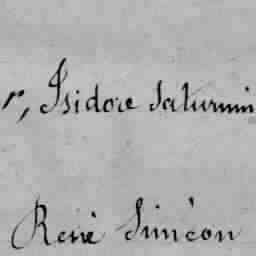 r, Isidore Saturnin
René Siméon